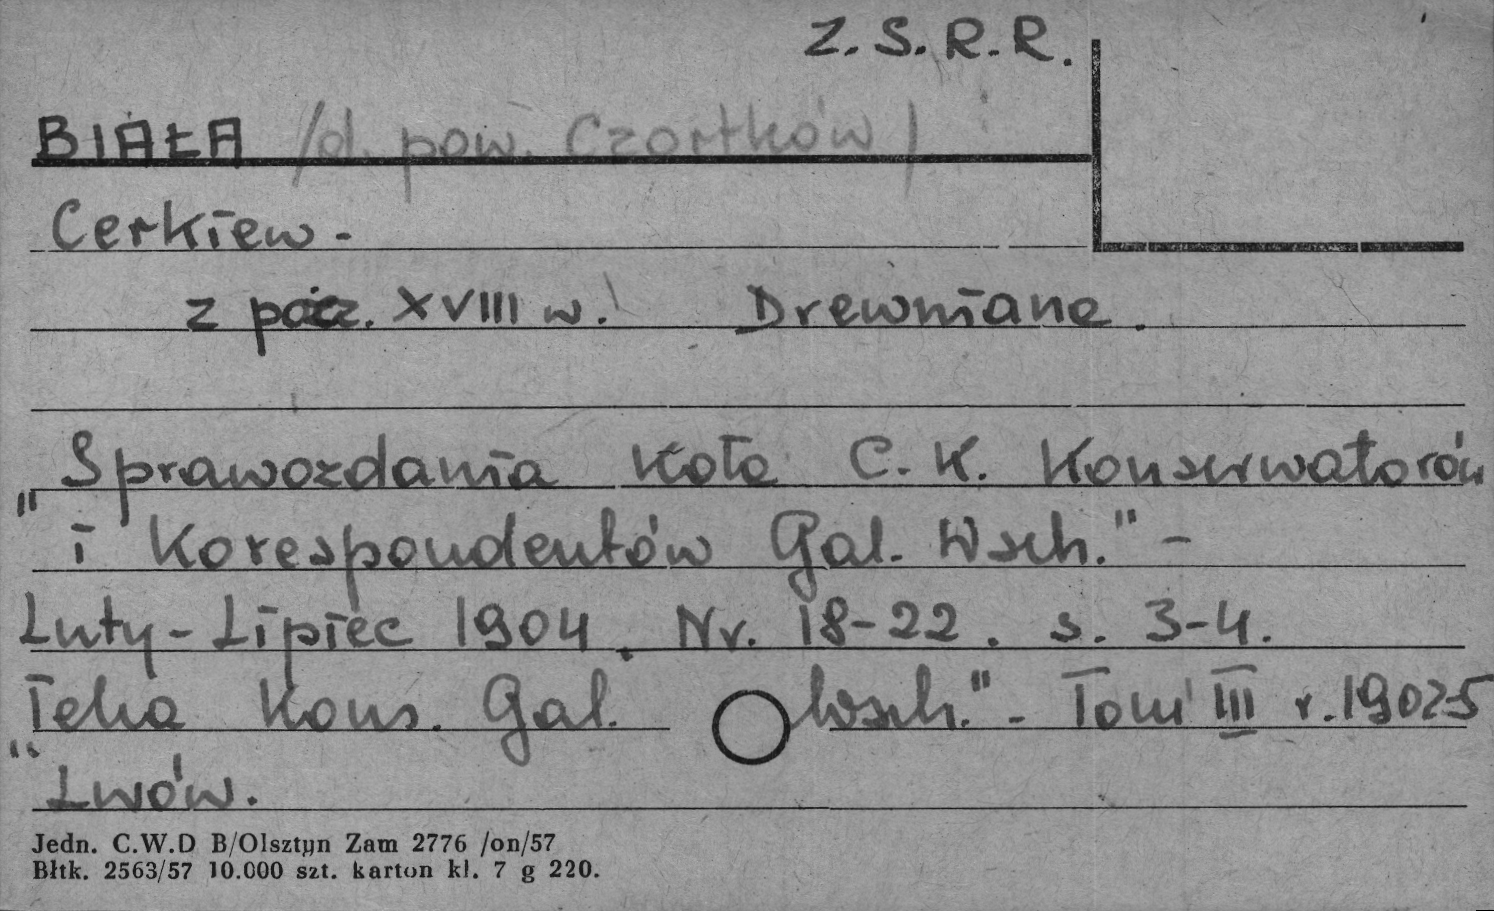 Z. S. R. R.
BIAŁA /d. pow. Czortków/
Cerkiew -
z pocz. XVIII w. Drewniane.
„Sprawozdania Koła C. K. Konserwatorów
i Korespondentów Gal. Wsch." -
Luty - Lipiec 1904. Nr. 18-22. s. 3-4.
„Teka Kons. Gal. Wsch." - Tom III r. 1902-5
Lwów.
Jedn. C.W.D B/Olsztyn Zam 2776 /on/57
Błtk. 2563/57 10.000 szt. karton kl. 7 g 220.